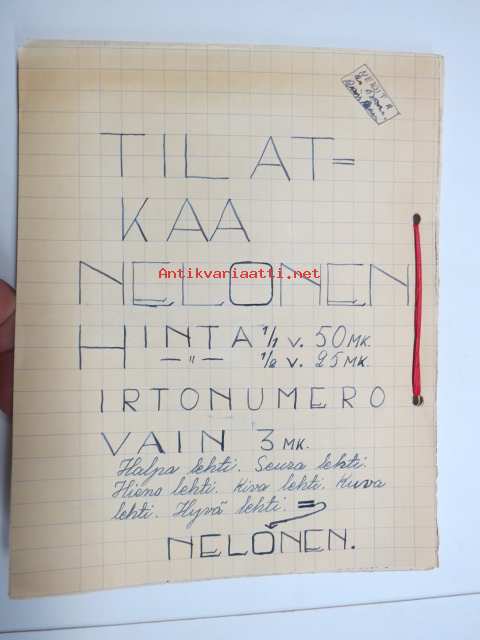 TILAT=
KAA
NELONEN
Antikvariaatti.net
HINTA 1/1 v. 50 MK.
— " — 1/2 v. 25 MK.
IRTONUMERO
VAIN 3 MK.
Halpa lehti. Seura lehti.
Hieno lehti. Kiva lehti. Kuva
lehti. Hyvä lehti. =
NELONEN.